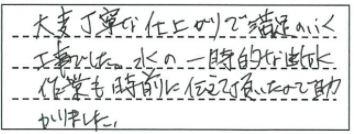 大変丁寧な仕上がりで満足のいく
工事でした。水の一時的な断水
作業も時前に伝えて頂いたので助
かりました。